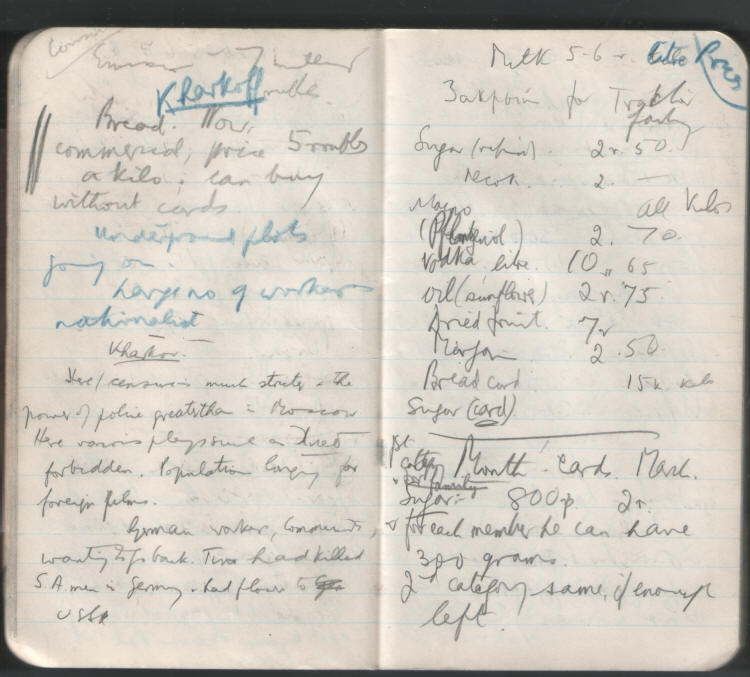 Kharkoff
Bread. Now,
commercial, price 5 roubles
a kilo; can buy
without cards.
Underground plots
going on.
Large no of workers
nationalist
Kharkov.
Here censure is much stricter & the
power of police greater than in Moscow
Here various plays such as
forbidden. Population longing for
foreign films.
German worker, Communist,
wanting to go back. Two had killed
S.A. men in Germany & had flown to
USSR
Milk 5-6 r. litre Prices
for Tractor
factory
Sugar (refined) 2 r. 50.
2. —
all kilos
2. 70.
Vodka litre. 10 " 65
oil (sunflower) 2 r. 75.
Dried fruit. 7 r
2.50
Bread card 15k kilo
Sugar (card)
1st
category Month - Cards. March.
for family
Sugar:- 800 gr. 2 r.
& for each member he can have
300 grams.
2nd category same, if enough
left.